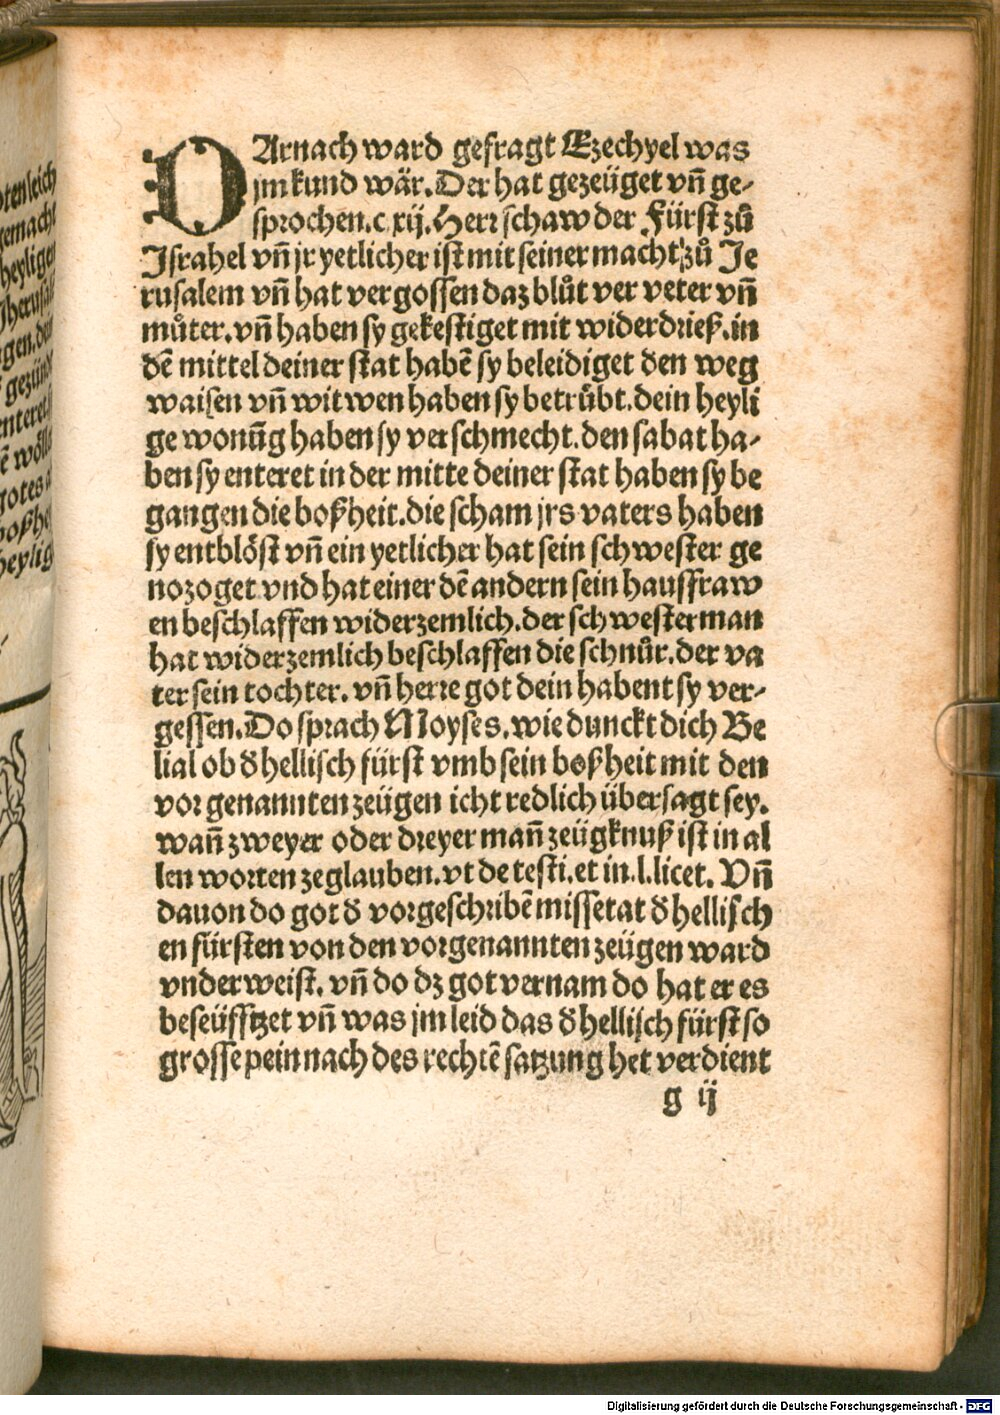 DArnach ward gefragt Ezechyel was
jm kund wär. Der hat gezeüget vñ ge-
sprochen. c xij. Herr schaw der Fürst zů
Israhel vñ jr yetlicher ist mit seiner macht zů Je
rusalem vñ hat vergossen daz blůt ver veter vñ
můter. vñ haben sy gekestiget mit widerdrieß. in
dẽ mittel deiner stat habẽ sy beleidiget den weg
waisen vñ witwen haben sy betrübt. dein heyli
ge wonũg haben sy verschmecht. den sabat ha-
ben sy enteret in der mitte deiner stat haben sy be
gangen die boßheit. die scham jrs vaters haben
sy entblöst vñ ein yetlicher hat sein schwester ge
nozoget vnd hat einer dẽ andern sein haussfraw
en beschlaffen widerzemlich. der schwester man
hat widerzemlich beschlaffen die schnůr. der va
ter sein tochter. vñ herre got dein habent sy ver-
gessen. Do sprach Moyses. wie dunckt dich Be
lial ob d̕ hellisch fürst vmb sein boßheit mit den
vorgenannten zeügen icht redlich übersagt sey.
wañ zweyer oder dreyer mañ zeügknuß ist in al
len worten zeglauben. vt de testi. et in. l. licet. Vñ
dauon do got d̕ vorgeschribẽ missetat d̕ hellisch
en fürsten von den vorgenannten zeügen ward
vnderweist. vñ do dz got vernam do hat er es
beseüfftzet vñ was jm leid das d̕ hellisch fürst so
grosse pein nach des rechtẽ satzung het verdient
g ij
Digitalisierung gefördert durch die Deutsche Forschungsgemeinschaft - DFG